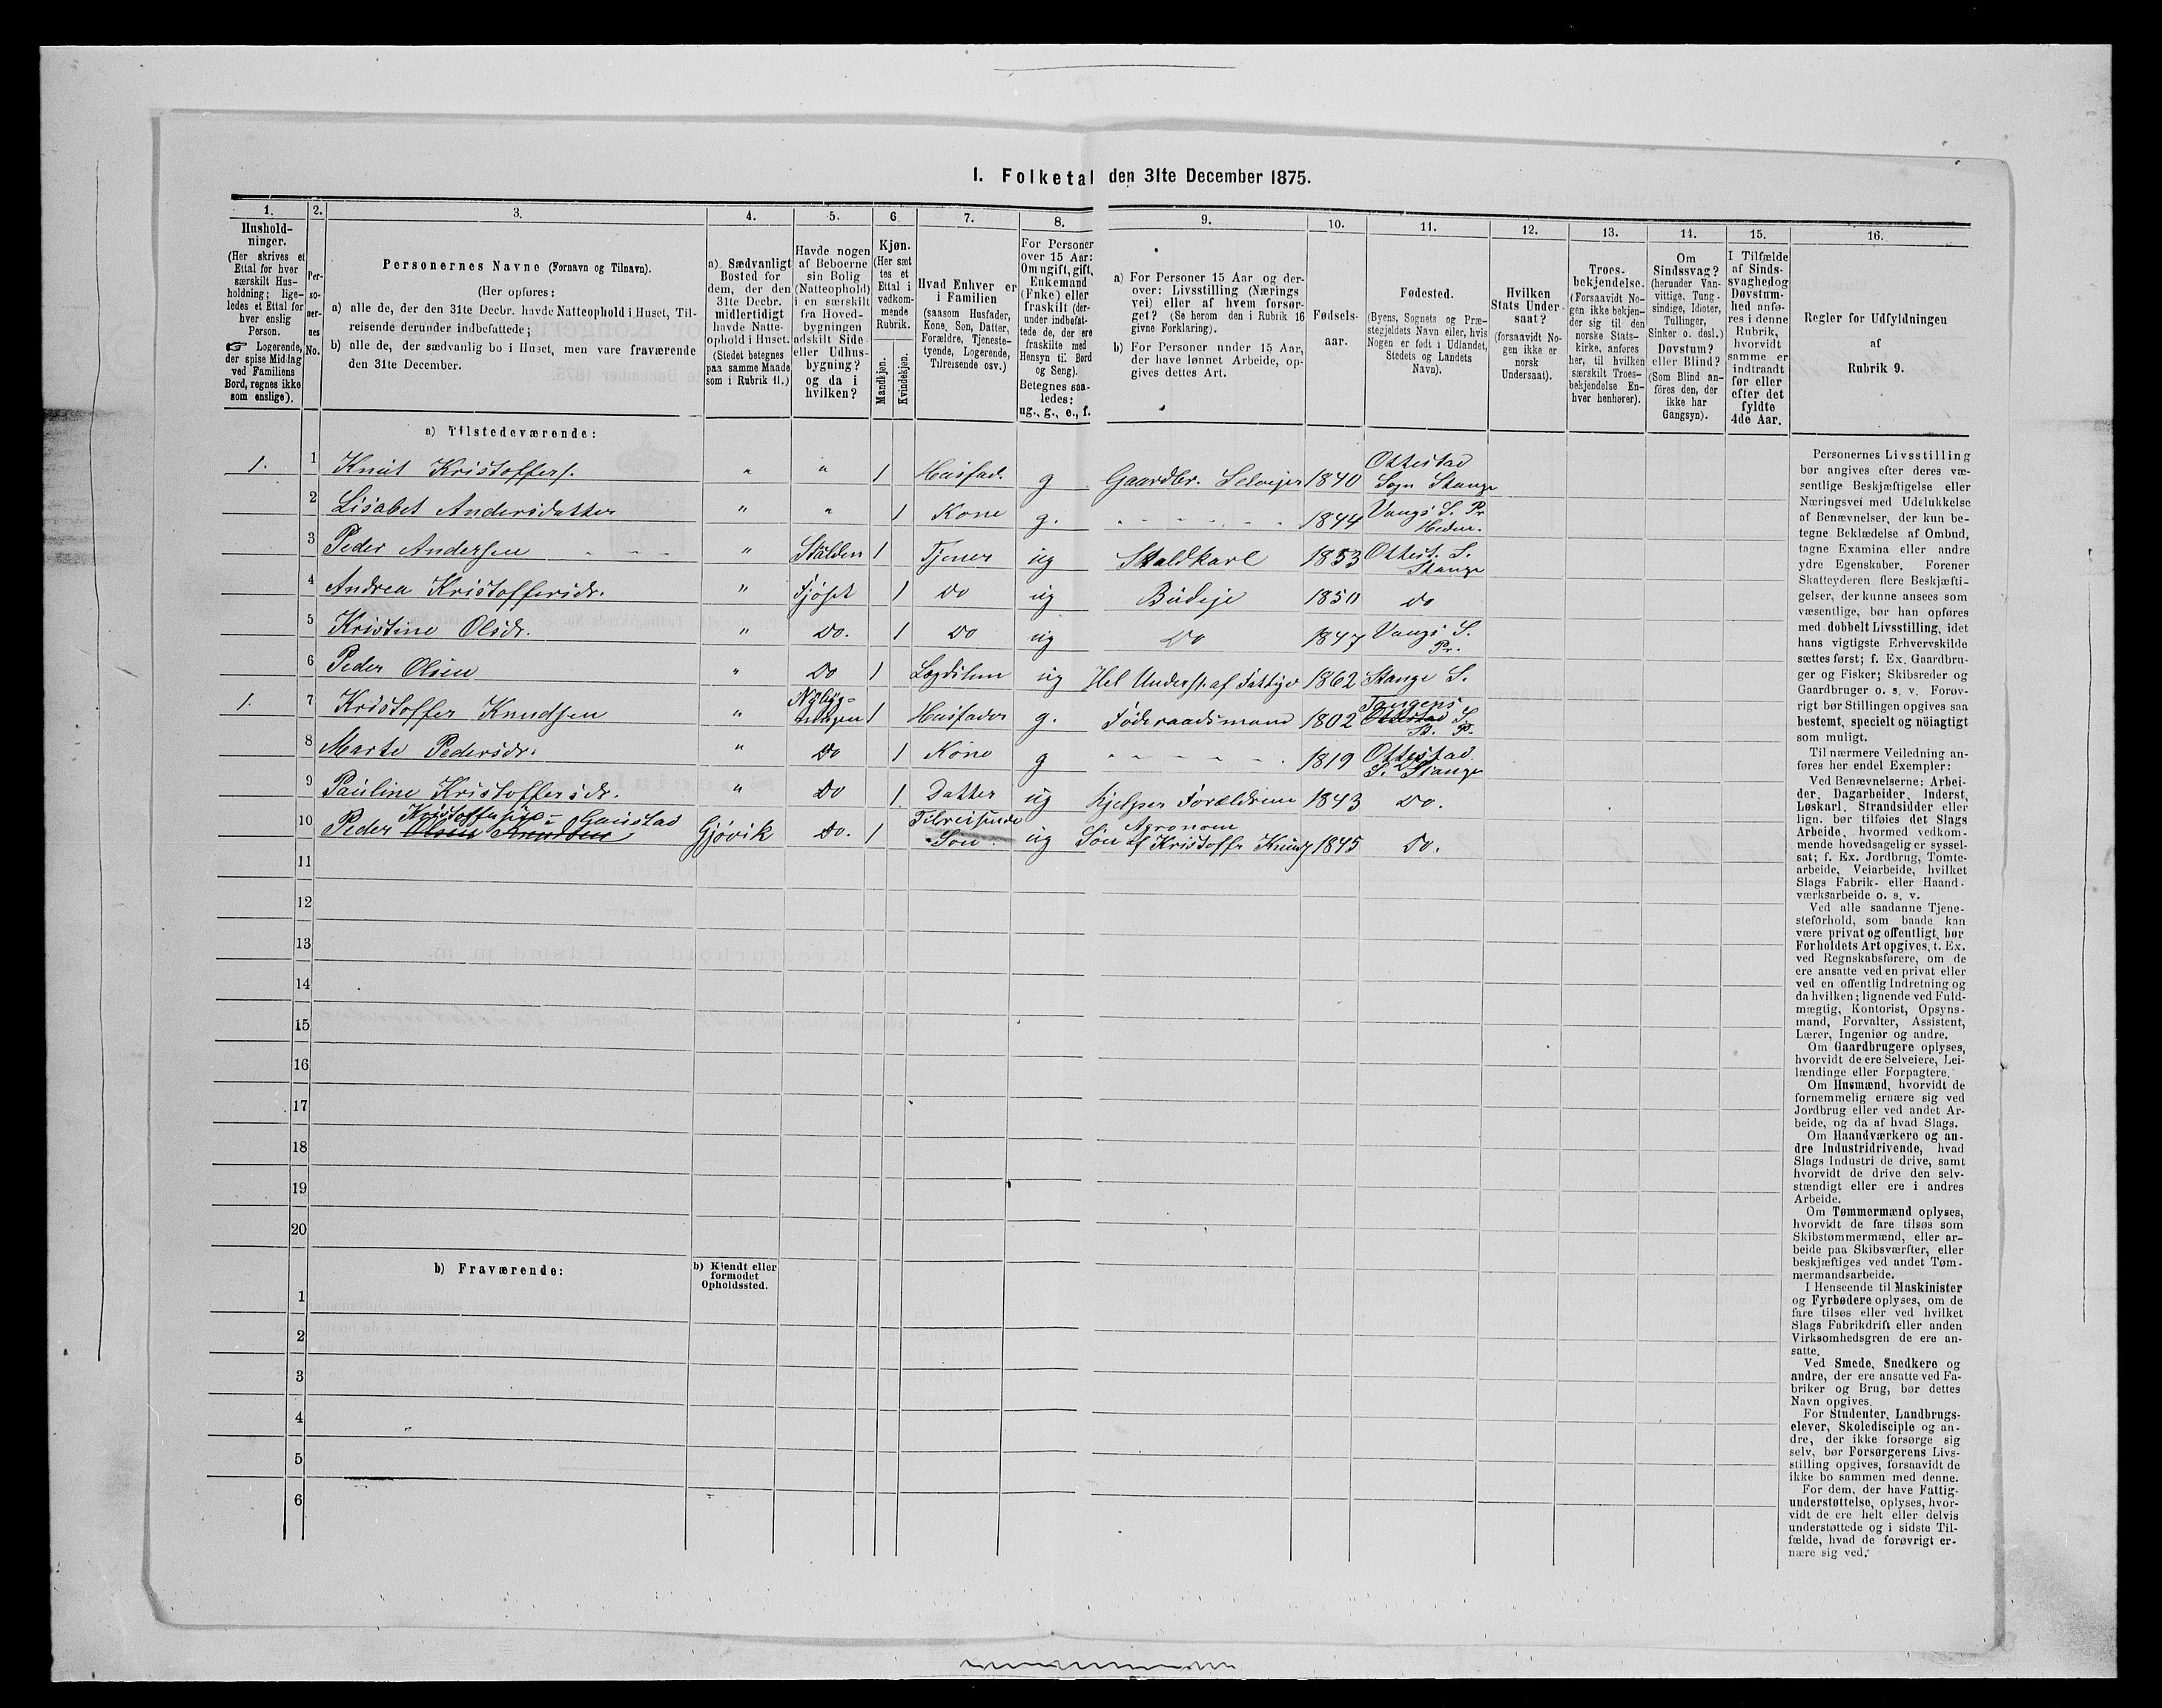 I. Folketal den 31te December 1875.
1. 2. 3. 4. 5. 6. 7. 8. 9. 10. 11. 12. 13. 14. 15. 16.
Hushold-
ninger.
(Her skrives et
Ettal for hver
særskilt Hus-
holdning; lige-
ledes et Ettal for
hver enslig
Person.
☞ Logerende,
der spise Middag
ved Familiens
Bord, regnes ikke
som enslige).
Per-
so-
ner-
nes
No.
Personernes Navne (Fornavn og Tilnavn).
(Her opføres:
a) alle de, der den 31te Decbr. havde Natteophold i Huset, Til-
reisende derunder indbefattede;
b) alle de, der sædvanlig bo i Huset, men vare fraværende
den 31te December.
a) Sædvanligt
Bosted for
dem, der den
31te Decbr.
midlertidigt
havde Natte-
ophold i Huset.
(Stedet betegnes
paa samme Maade
som i Rubrik 11.)
Havde nogen
af Beboerne
sin Bolig
(Natteophold)
i en særskilt
fra Hoved-
bygningen
adskilt Side-
eller Udhus-
bygning?
og da i
hvilken?
Kjøn.
(Her sæt-
tes et
Ettal i
vedkom-
mende
Rubrik.
Mandkjøn.
Kvindekjøn.
Hvad Enhver er
i Familien
(saasom Husfader,
Kone, Søn, Datter,
Forældre, Tjeneste-
tyende, Logerende,
Tilreisende osv.)
For Personer
over 15 Aar:
Om ugift, gift,
Enkemand
(Enke) eller
fraskilt (der-
under indbefat-
tede de, der ere
fraskilte med
Hensyn til Bord
og Seng).
Betegnes saa-
ledes:
ug., g., e., f.
a) For Personer 15 Aar og der-
over: Livsstilling (Nærings
vei) eller af hvem forsør-
get? (Se herom den i Rubrik 16
givne Forklaring).
b) For Personer under 15 Aar,
der have lønnet Arbeide, op-
gives dettes Art.
Fødsels-
aar.
Fødested.
(Byens, Sognets og Præ-
stegjeldets Navn eller, hvis
Nogen er født i Udlandet,
Stedets og Landets
Navn).
Hvilken
Stats Under-
saat?
(forsaavidt No-
gen ikke er
norsk
Undersaat).
Troes-
bekjendelse.
(Forsaavidt No-
gen ikke bekjen-
der sig til den
norske Stats-
kirke, anføres
her, til hvilken
særskilt Troes-
bekjendelse En-
hver henhører).
Om
Sindssvag?
(herunder Van-
vittige, Tung-
sindige, Idioter,
Tullinger,
Sinker o. desl.)
Døvstum?
eller Blind?
(Som Blind an-
føres den, der
ikke har
Gangsyn).
I Tilfælde
af Sinds-
svaghed og
Døvstum-
hed anfø-
res i denne
Rubrik,
hvorvidt
samme er
indtraadt
før eller
efter det
fyldte
4de Aar.
Regler for Udfyldningen
af
Rubrik 9.
a) Tilstedeværende:
1. 1 Knut Kristoffers. " " 1 Husfad. g Gaardbr. Selveier 1840 Ottestad
Sogn Stange
2 Lisabet Andersdatter " " 1 Kone g. 1844 Vangs S. Pr
Hedm.
3 Peder Andersen " Stalden 1 Tjener ug Staldkarl 1853 Ottest. S.
Stange
4 Andrea Kristoffersdr. " Fjøset 1 Do ug Budeje 1850 do
5 Kristine Olsdr. " Do. 1 Do ug Do 1847 Vangs S.
Pr.
6 Peder Olsen " Do 1 Lægdslem ug Hel Underst. af Fattigv 1862 Stange S.
1. 7 Kristoffer Knudsen " Nybyg-
ningen 1 Husfader g. Føderaadsmand 1802 Tangens
Ottestad S.
St. P.
8 Marte Pedersdr. " Do 1 Kone g 1819 Ottestad
S. Stange
9 Pauline Kristoffersdr. " Do 1. Datter ug hjelper Forældrene 1843 Do.
Kristoffersen Gaustad
10 Peder Olsen Knudsen Gjøvik Do. 1 Tilreisende
Søn. ug Agronom
Søn af Kristoffr Knuds 1845 Do.
11
12
13
14
15
16
17
18
19
20
b) Fraværende:
b) Kjendt eller
formodet
Opholdssted.
1
2
3
4
5
6
Personernes Livsstilling
bør angives efter deres væ-
sentlige Beskjæftigelse eller
Næringsvei med Udelukkelse
af Benævnelser, der kun be-
tegne Beklædelse af Ombud,
tagne Examina eller andre
ydre Egenskaber. Forener
Skatteyderen flere Beskjæfti-
gelser, der kunne ansees som
væsentlige, bør han opføres
med dobbelt Livsstilling, idet
hans vigtigste Erhvervskilde
sættes først; f. Ex. Gaardbru-
ger og Fisker; Skibsreder og
Gaardbruger o. s. v. Forøv-
rigt bør Stillingen opgives saa
bestemt, specielt og nöiagtigt
som muligt.
Til nærmere Veiledning an-
føres her endel Exempler:
Ved Benævnelserne: Arbei-
der, Dagarbeider, Inderst,
Løskarl, Strandsidder eller
lign. bør tilføies det Slags
Arbeide, hvormed vedkom-
mende hovedsagelig er syssel-
sat; f. Ex. Jordbrug, Tomte-
arbeide, Veiarbeide, hvilket
Slags Fabrik- eller Haand-
værksarbeide o. s. v.
Ved alle saadanne Tjene-
steforhold, som baade kan
være privat og offentligt, bør
Forholdets Art opgives, t. Ex.
ved Regnskabsførere, om de
ere ansatte ved en privat eller
ved en offentlig Indretning og
da hvilken; lignende ved Fuld-
mægtig, Kontorist, Opsyns-
mand, Forvalter, Assistent,
Lærer, Ingeniør og andre.
Om Gaardbrugere oplyses,
hvorvidt de ere Selveiere, Lei-
lændinge eller Forpagtere.
Om Husmænd, hvorvidt de
fornemmelig ernære sig ved
Jordbrug eller ved andet Ar-
beide, og da af hvad Slags.
Om Haandværkere og an-
dre Industridrivende, hvad
Slags Industri de drive, samt
hvorvidt de drive den selv-
stændigt eller ere i andres
Arbeide.
Om Tømmermænd oplyses,
hvorvidt de fare tilsøs som
Skibstømmermænd, eller ar-
beide paa Skibsværfter, eller
beskjæftiges ved andet Tøm-
mermandsarbeide.
I Henseende til Maskinister
og Fyrbødere oplyses, om de
fare tilsøs eller ved hvilket
Slags Fabrikdrift eller anden
Virksomhedsgren de ere an-
satte.
Ved Smede, Snedkere og
andre, der ere ansatte ved Fa-
briker og Brug, bør dettes
Navn opgives.
For Studenter, Landbrugs-
elever, Skoledisciple og an-
dre, der ikke forsørge sig
selv, bør Forsørgerens Livs-
stilling opgives, forsaavidt de
ikke bo sammen med denne.
For dem, der have Fattig-
understøttelse, oplyses, hvor-
vidt de ere helt eller delvis
understøttede og i sidste Til-
fælde, hvad de forøvrigt er-
nære sig ved.